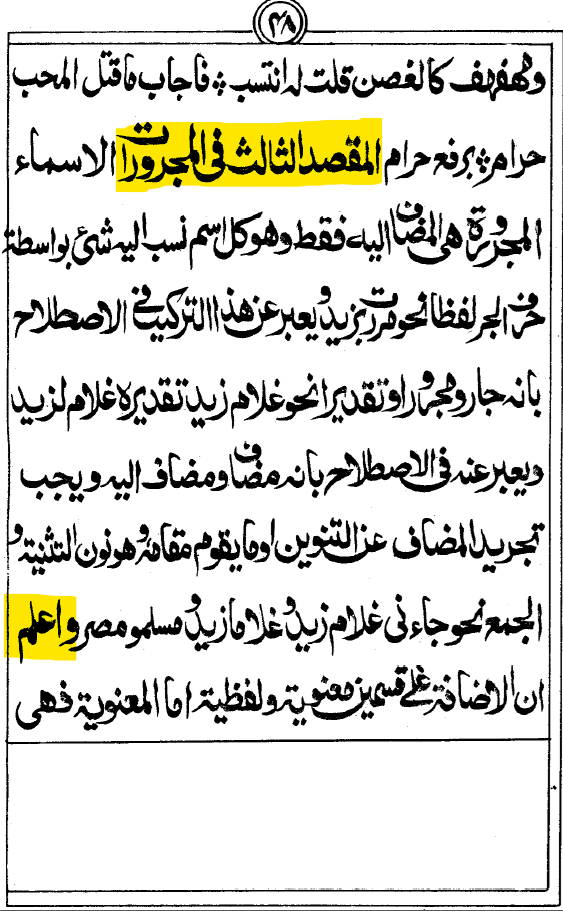 ٤٨
ومهفهف كالغصن قلت له انتسب ؞ فاجاب ما قتل المحب
حرام ؞ برفع حرام المقصد الثالث فی المجرورات الاسماء
المجرورة هی المضاف اليه فقط وهو كل اسم نسب اليه شئ بواسطة
حرف الجر لفظا نحو مررت بزيد ويعبر عن هذا التركيب فی الاصطلاح
بانه جار ومجرور او تقديرا نحو غلام زيد تقديره غلام لزيد
ويعبر عنه فی الاصطلاح بانه مضاف ومضاف اليه ويجب
تجريد المضاف عن التنوين او ما يقوم مقامه وهو نون التثنية و
الجمع نحو جاءنی غلام زيد وغلاما زيد ومسلمو مصر واعلم
ان الاضافة علی قسمين معنوية ولفظية اما المعنوية فهی